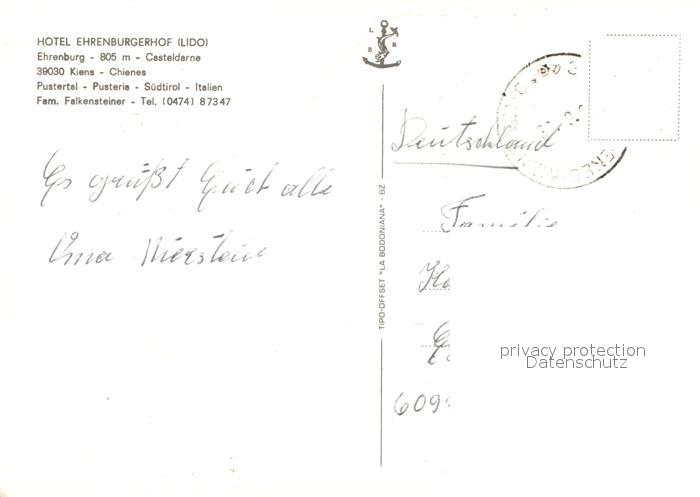 HOTEL EHRENBURGERHOF (LIDO)
Ehrenburg - 805 m - Casteldarne
39030 Kiens - Chienes
Pustertal - Pusteria - Südtirol - Italien
Fam. Falkensteiner - Tel. (0474) 87347
L B B S
Es grüßt Euch alle
Oma Nierstein
TIPO-OFFSET "LA BODONIANA" - BZ
Deutschland
Familie
609
privacy protection
Datenschutz